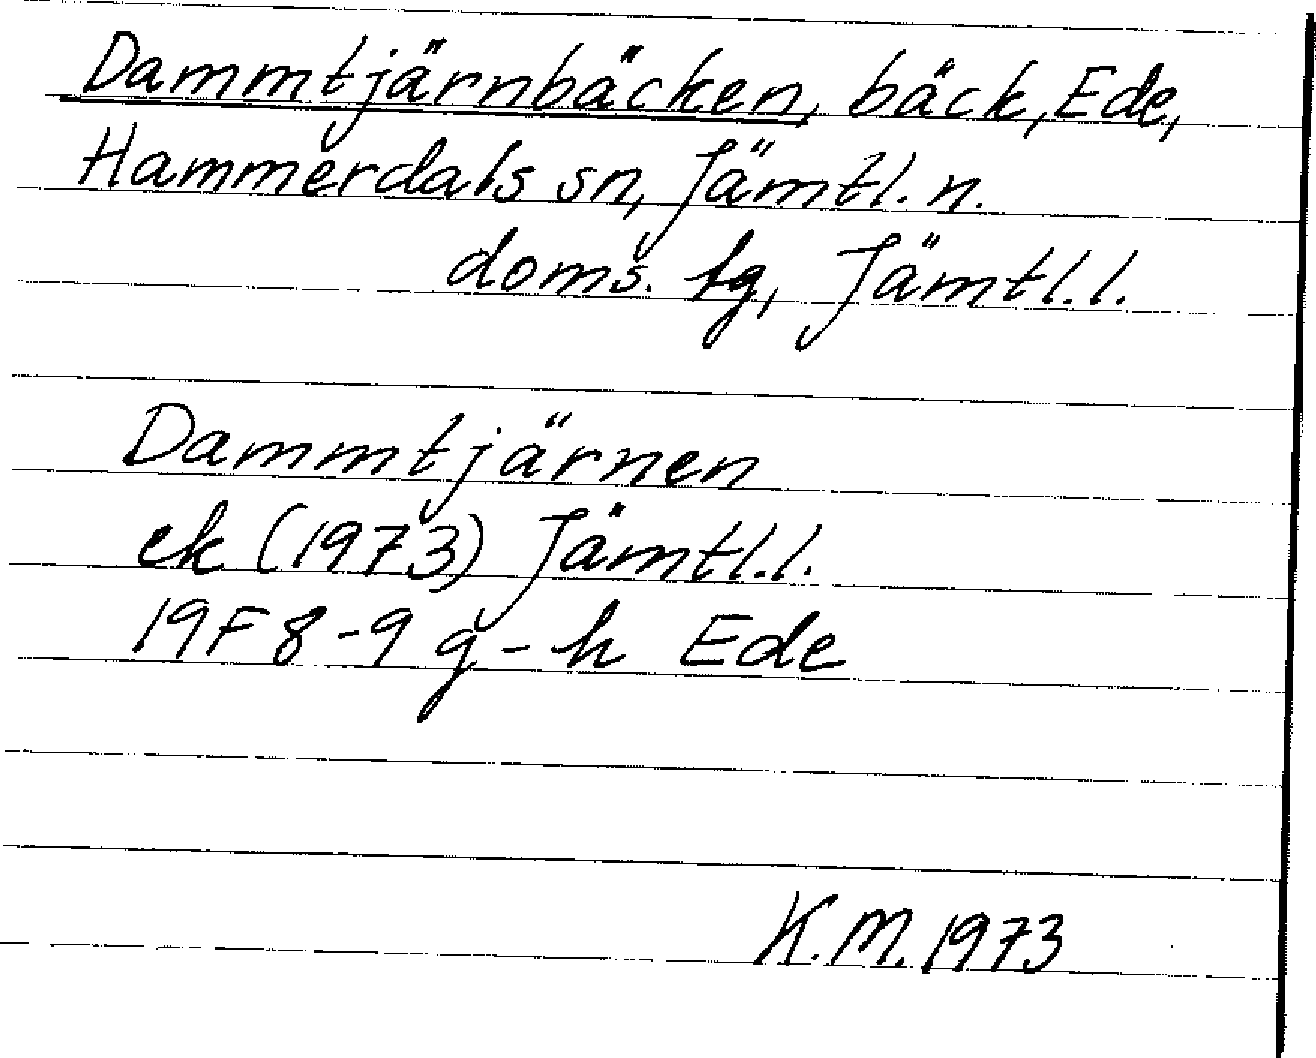 Dammtjärnbäcken, bäck, Ede,
Hammerdals sn, Jämtl. n.
doms. tg, Jämtl. l.
Dammtjärnen
ek (1973) Jämtl. l.
19F 8-9 g-h Ede
K.M. 1973